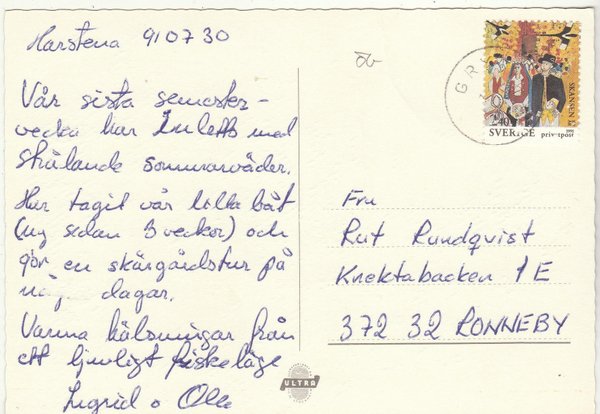 Harstena 910730
Vår sista semester-
vecka har inletts med
strålande sommarväder.
Har tagit vår lilla båt
(ny sedan 3 veckor) och
gör en skärgårdstur på
dagar.
Varma hälsningar från
ett ljuvligt fiskeläge
Ingrid o Olle
GR
SKANSEN
2.40
SVERIGE privatpost
Fru
Rut Rundqvist
Knektabacken 1 E
372 32 RONNEBY
ULTRA